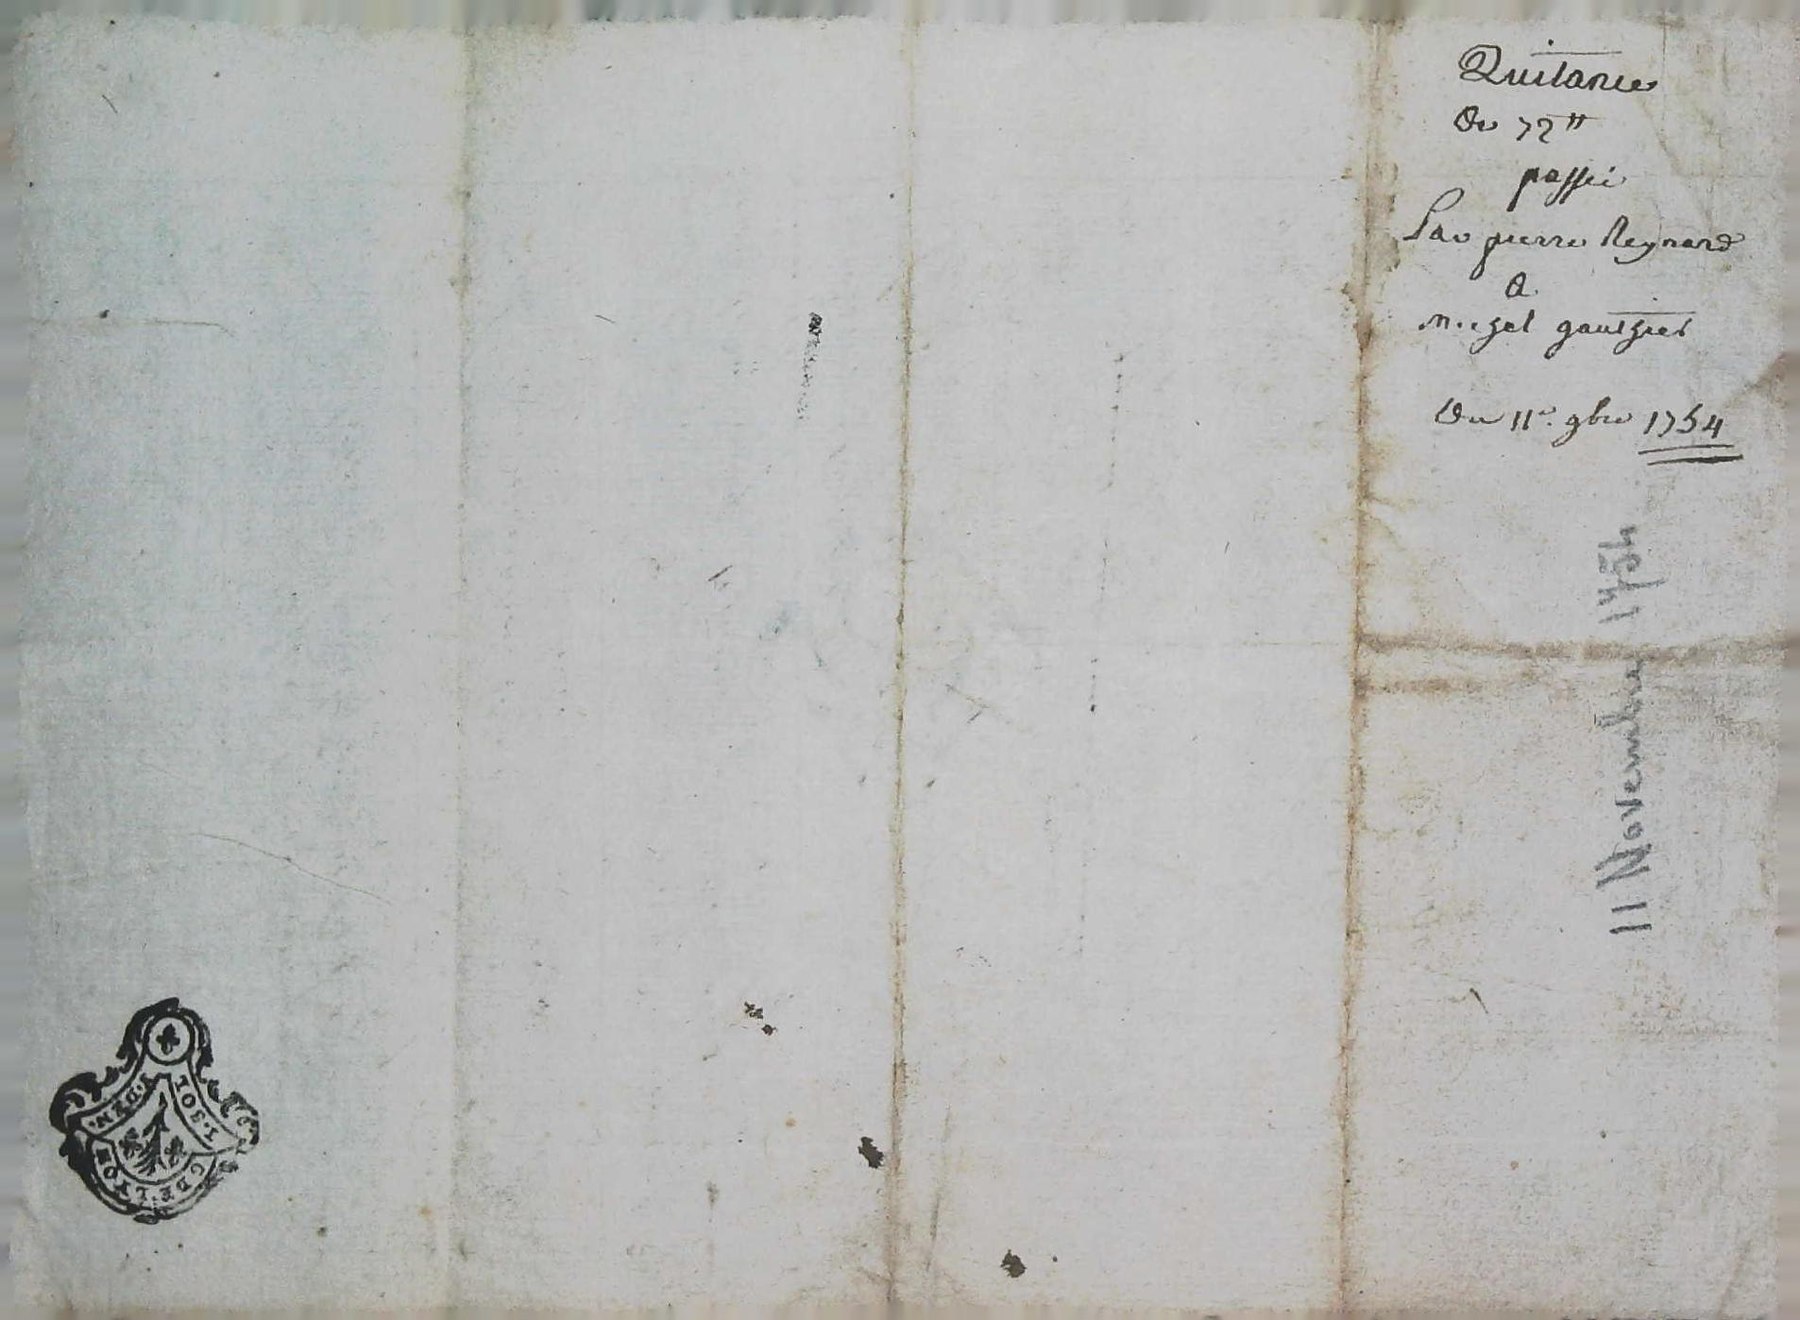 Quitance
De 72 ₶
passée
Par pierre Reynard
A
michel gauthier
Du 11e. 9bre 1754
11 Novembre 1754
1·SOL
4·DEN·
G DE·LYON